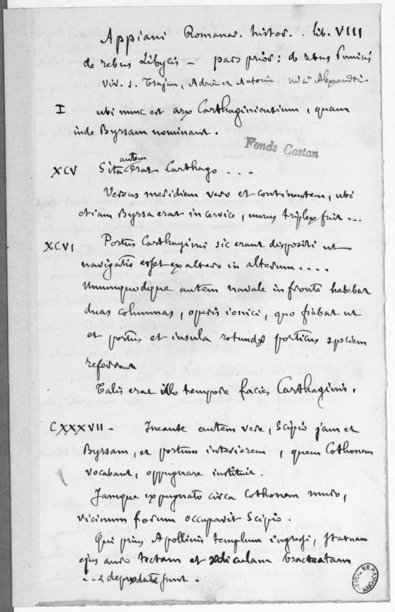 Appiani Romanar. histor. lib. VIII
de rebus Libycis — pars prior: de rebus Punicis
Viv. s. Trajan, Adrien et Antonin Alexandri
I ubi nunc est arx Carthaginientium, quam
inde Byrsam nominant.
Fonds Castan
XCV Sita autem erat Carthago . . .
Versus meridiem vero et continentem, ubi
etiam Byrsa erat in cervice, murus triplex fuit ...
XCVI Portus Carthagini sic erant dispositi ut
navigatio esset ex altero in alterum ....
Unumquodque autem navale in fronte habebat
duas columnas, operis ionici, quo fiebat ut
et portus et insula rotundæ porticus speciem
referrent
Talis erat illo tempore facies Carthaginis.
CXXXVII — Ineunte autem vere, Scipio jam et
Byrsam, et portum interiorem, quem Cothonem
vocabant, oppugnare instituit.
Jamque expugnato circa Cothonem muro,
vicinum forum occupavit Scipio.
Qui prius Apollinis templum ingressi, statuam
ejus auro tectam et ædiculam bracteatam
... deprædati sunt.